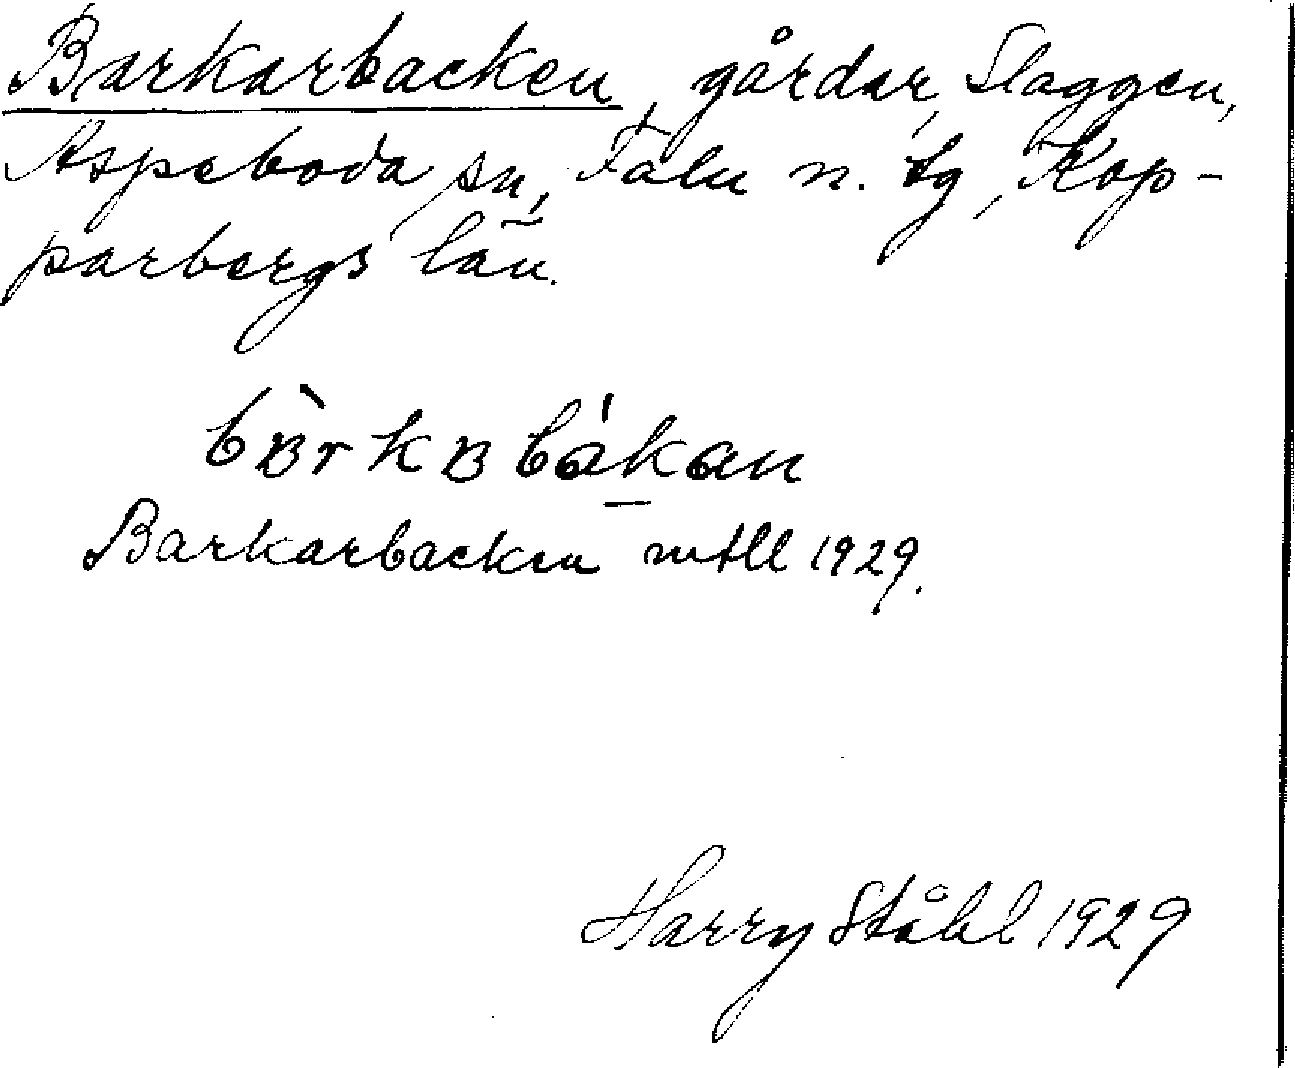 Barkarbacken, gårdar, Slaggen,
Aspeboda sn, Falu n. tg, Kop-
parbergs län.
Barkarbacken mtll 1929.
Harry Ståhl 1929